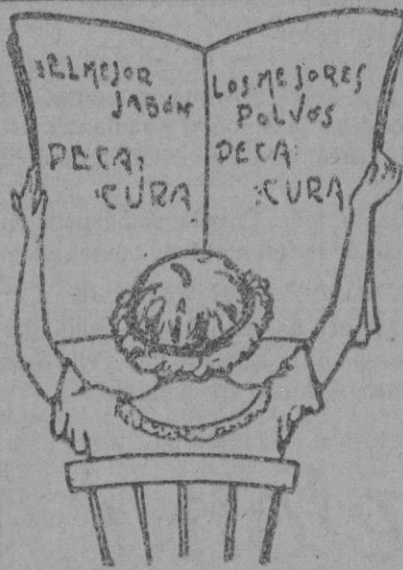 :EL MEJOR
JABÓN
DECA:
:CURA
LOS MEJORES
POLVOS
DECA:
:CURA